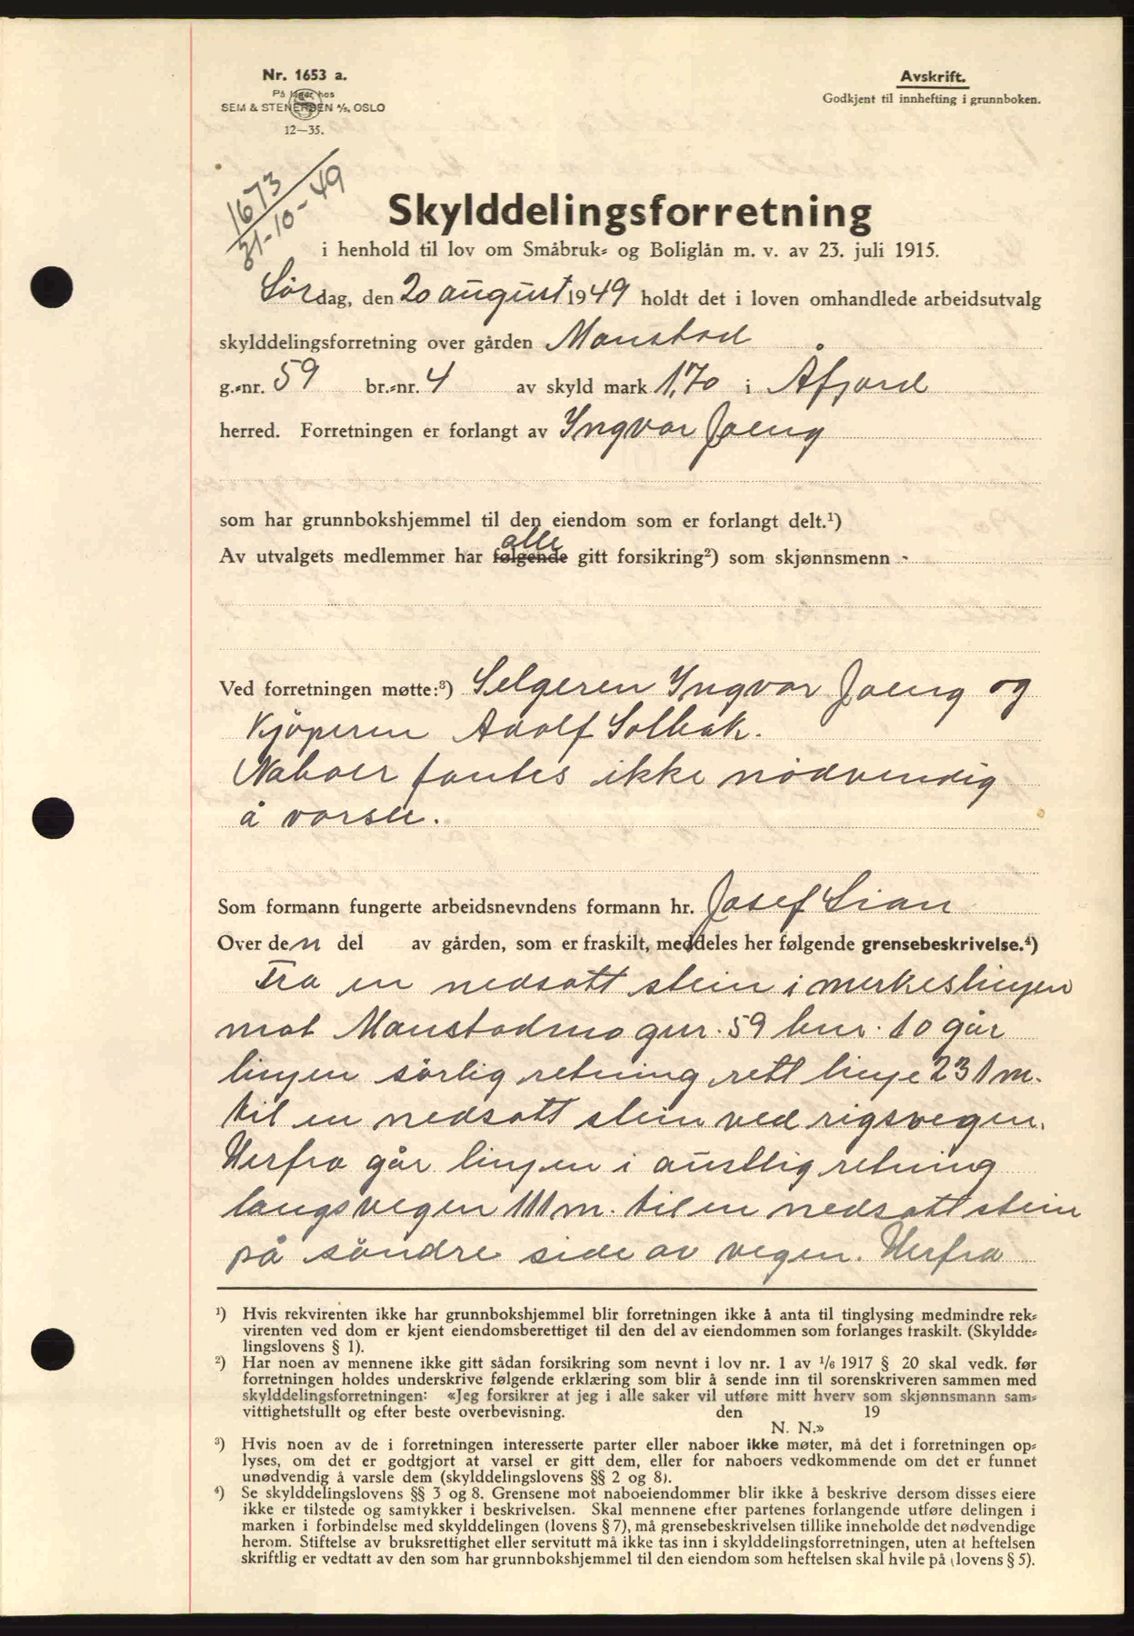 Nr. 1653 a.
På lager hos
SEM & STENERSEN A/S, OSLO
12—35.
Avskrift.
Godkjent til innhefting i grunnboken.
1673
31-10-49
Skylddelingsforretning
i henhold til lov om Småbruk- og Boliglån m. v. av 23. juli 1915.
Lørdag, den 20 august 1949 holdt det i loven omhandlede arbeidsutvalg
skylddelingsforretning over gården Monstad
g.-nr. 59 br.-nr. 4 av skyld mark 1,70 i Åfjord
herred. Forretningen er forlangt av Yngvar Joeng
som har grunnbokshjemmel til den eiendom som er forlangt delt.¹)
alle
Av utvalgets medlemmer har følgende gitt forsikring²) som skjønnsmenn -
Ved forretningen møtte:³) Selgeren Yngvar Joeng og
Kjøperen Adolf Solbak.
Naboer fantes ikke nødvendig
å varsle.
Som formann fungerte arbeidsnevndens formann hr. Josef Lian
Over den del av gården, som er fraskilt, meddeles her følgende grensebeskrivelse.⁴)
Fra en nedsatt stein i merkeslinjen
mot Monstadmo gnr. 59 bnr. 10 går
linjen sørlig retning rett linje 231 m.
til en nedsatt stein ved rigsvegen.
Herfra går linjen i austlig retning
langs vegen 111 m. til en nedsatt stein
på søndre side av vegen. Herfra
¹) Hvis rekvirenten ikke har grunnbokshjemmel blir forretningen ikke å anta til tinglysing medmindre rek-
virenten ved dom er kjent eiendomsberettiget til den del av eiendommen som forlanges fraskilt. (Skyldde-
lingslovens § 1).
²) Har noen av mennene ikke gitt sådan forsikring som nevnt i lov nr. 1 av 1/6 1917 § 20 skal vedk. før
forretningen holdes underskrive følgende erklæring som blir å sende inn til sorenskriveren sammen med
skylddelingsforretningen: «Jeg forsikrer at jeg i alle saker vil utføre mitt hverv som skjønnsmann sam-
vittighetsfullt og efter beste overbevisning. den 19
N. N.»
³) Hvis noen av de i forretningen interesserte parter eller naboer ikke møter, må det i forretningen op-
lyses, om det er godtgjort at varsel er gitt dem, eller for naboers vedkommende om det er funnet
unødvendig å varsle dem (skylddelingslovens §§ 2 og 8).
⁴) Se skylddelingslovens §§ 3 og 8. Grensene mot naboeiendommer blir ikke å beskrive dersom disses eiere
ikke er tilstede og samtykker i beskrivelsen. Skal mennene efter partenes forlangende utføre delingen i
marken i forbindelse med skylddelingen (lovens § 7), må grensebeskrivelsen tillike inneholde det nødvendige
herom. Stiftelse av bruksrettighet eller servitutt må ikke tas inn i skylddelingsforretningen, uten at heftelsen
skriftlig er vedtatt av den som har grunnbokshjemmel til den eiendom som heftelsen skal hvile på (lovens § 5).